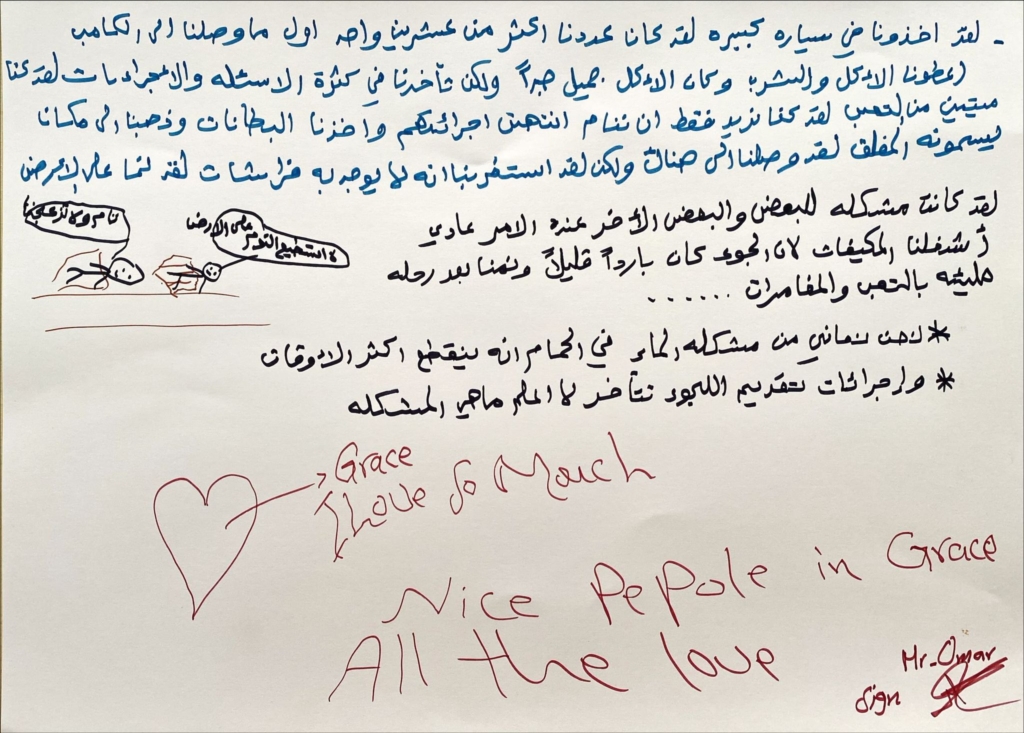 - لقد اخذونا في سياره كبيره لقد كان عددنا اكثر من عشرين واحد اول ما وصلنا الى الكامب
اعطونا الاكل والشرب وكان الاكل جميل جداً ولكن تأخرنا في كثرة الاسئله والاجراءات لقد كنا
ميتين من التعب لقد كنا نريد فقط ان ننام انتهت اجرائتهم واخذنا البطانات وذهبنا الى مكان
يسمونه المغلق لقد وصلنا الى هناك ولكن لقد استغربنا انه لا يوجد به فراشات لقد نمنا على الارض
لقد كانت مشكله للبعض والبعض الأخر عنده الامر عادي
أشغلنا المكيفات لان الجو كان بارداً قليلاً ونمنا بعد رحله
مليئه بالتعب والمغامرات ......
نام ولا تزعجنا
لا استطيع النوم على الارض
* نحن نعاني من مشكله الماء في الحمام انه ينقطع اكثر الاوقات
* واجرائات تقديم اللجوء تتأخر لا اعلم ماهي المشكله
Grace
I Love So March
Nice Pepole in Grace
All the love
Mr-Omar
Sign